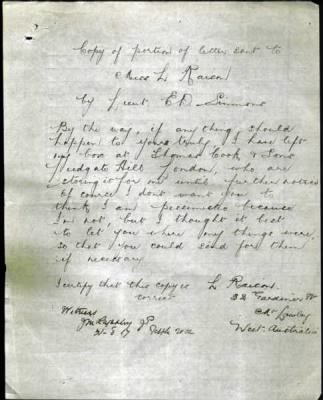 Copy of portion of letter sent to
Miss L Raison
by Lieut. E.D. Simmons
By the way, if any thing should
happen to yours truly, I have left
my box at Thomas Cook & Sons
Ludgate Hill London, who are
storing it for me until further notice
Of course I dont want you to
think I am pessimistic because
I'm not, but I thought it best
to let you where my things were,
so that you could send for them
if necessary
I certify that this copy is L Raison
correct 32 Gardiner St
Mt Lawley
Witness West Australia
J.P.
W. S.